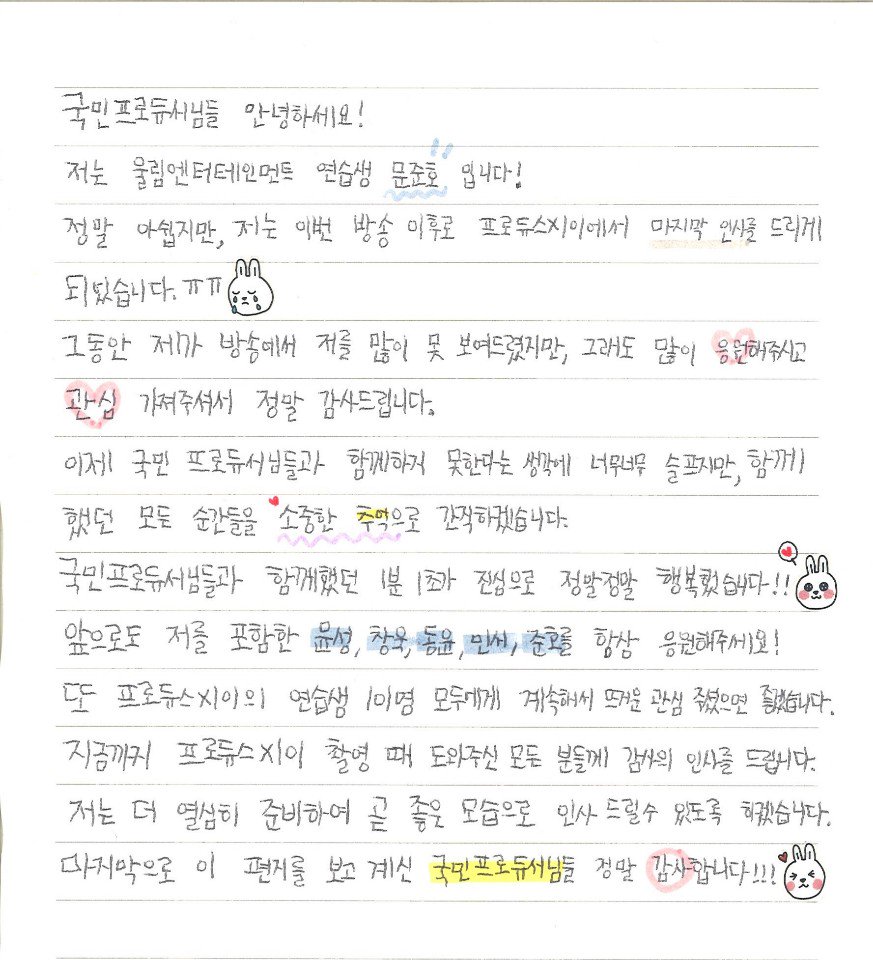 국민프로듀서님들 안녕하세요!
저는 울림엔터테인먼트 연습생 문준호 입니다!
정말 아쉽지만, 저는 이번 방송 이후로 프로듀스X101에서 마지막 인사를 드리게
되었습니다.ㅠㅠ
그동안 제가 방송에서 저를 많이 못 보여드렸지만, 그래도 많이 응원해주시고
관심 가져주셔서 정말 감사드립니다.
이제 국민 프로듀서님들과 함께하지 못한다는 생각에 너무너무 슬프지만, 함께
했던 모든 순간들을 소중한 추억으로 간직하겠습니다.
국민프로듀서님들과 함께했던 1분 1초가 진심으로 정말정말 행복했습니다!!
앞으로도 저를 포함한 윤성, 창욱, 동윤, 민서, 준호를 항상 응원해주세요!
또 프로듀스X101의 연습생 101명 모두에게 계속해서 뜨거운 관심 주셨으면 좋겠습니다.
지금까지 프로듀스X101 촬영 때 도와주신 모든 분들께 감사의 인사를 드립니다.
저는 더 열심히 준비하여 곧 좋은 모습으로 인사 드릴수 있도록 하겠습니다.
마지막으로 이 편지를 보고 계신 국민프로듀서님들 정말 감사합니다!!!